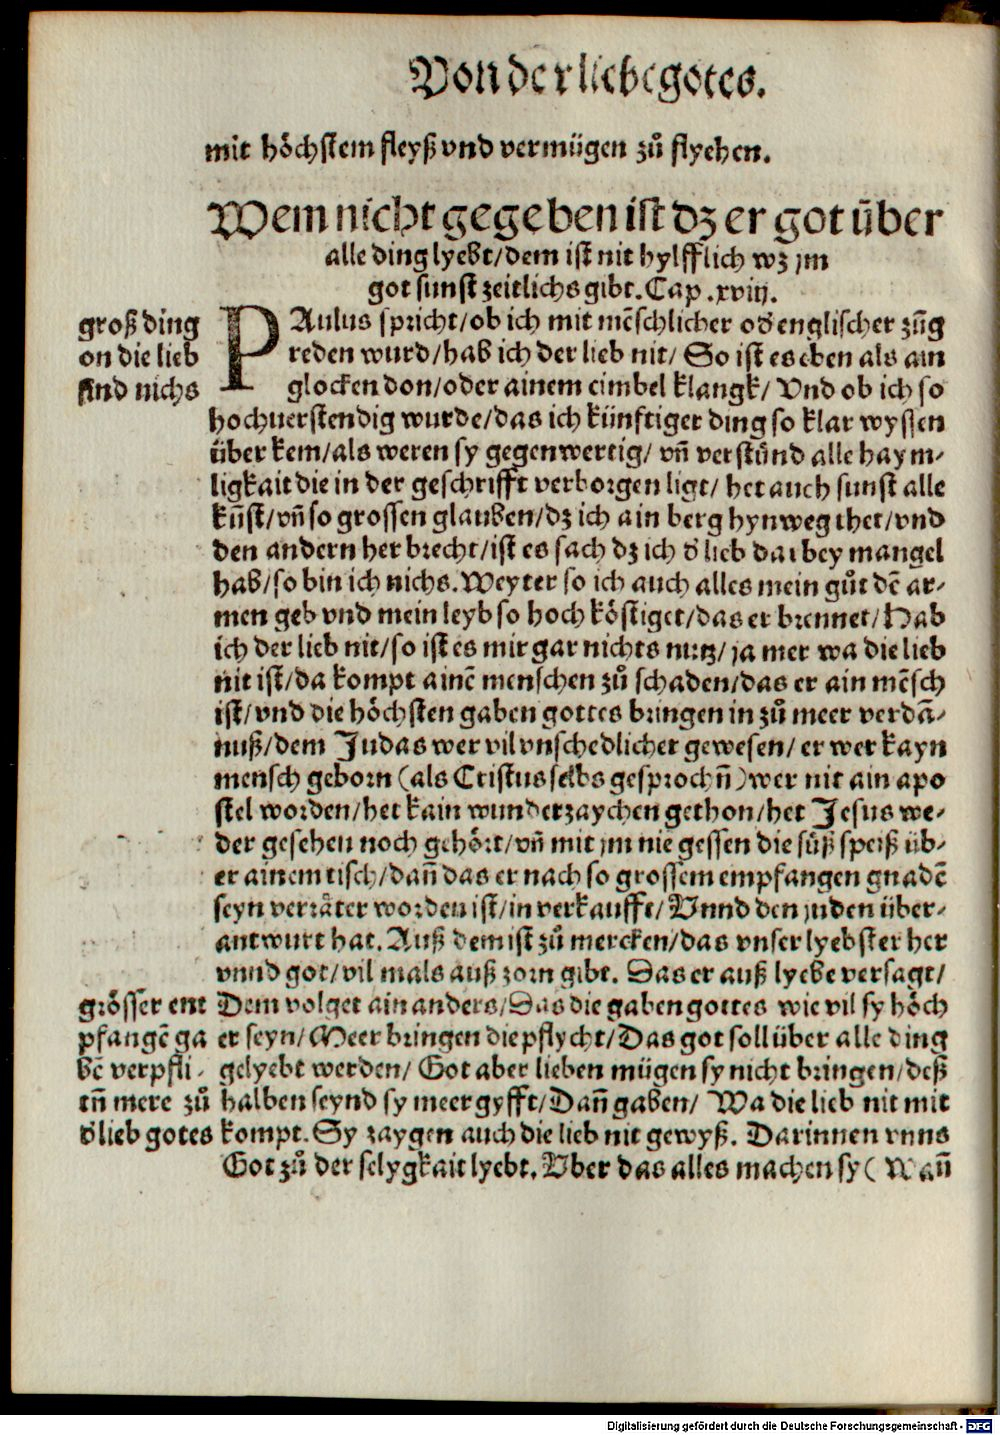 Von der liebe gotes.
mit höchstem fleyß vnd vermügen zů flyehen.
Wem nicht gegeben ist dz er got über
alle ding lyebt/dem ist nit hylfflich wz jm
got sunst zeitlichs gibt. Cap .xviij.
groß ding
on die lieb
sind nichs
PAulus spricht/ob ich mit mēschlicher od̕ englischer zūg
reden wurd/hab ich der lieb nit/ So ist es eben als ain
glocken don/oder ainem cimbel klangk/ Vnd ob ich so
hochuerstendig wurde/das ich künftiger ding so klar wyssen
über kem/als weren sy gegenwertig/ vn̄ verstünd alle haym-
ligkait die in der geschrifft verborgen ligt/ het auch sunst alle
kūst/vn̄ so grossen glauben/dz ich ain berg hynweg thet/vnd
den andern her brecht/ist es sach dz ich d̕ lieb darbey mangel
hab/so bin ich nichs. Weyter so ich auch alles mein gůt dē ar-
men geb vnd mein leyb so hoch köstiget/das er brennet/Hab
ich der lieb nit/so ist es mir gar nichts nutz/ja mer wa die lieb
nit ist/da kompt ainē menschen zů schaden/das er ain mēsch
ist/vnd die höchsten gaben gottes bringen in zů meer verdā-
nuß/dem Judas wer vil vnschedlicher gewesen/ er wer kayn
mensch geborn (als Cristus selbs gesprochn̄) wer nit ain apo
stel worden/het kain wunderzaychen gethon/het Jesus we-
der gesehen noch gehört/vn̄ mit jm nie gessen die süß speiß üb-
er ainem tisch/dan̄ das er nach so grossem empfangen gnadē
seyn verräter worden ist/in verkaufft/ Vnnd den juden über-
antwurt hat. Auß dem ist zů mercken/das vnser lyebster her
vnnd got/vil mals auß zorn gibt. Das er auß lyebe versagt/
grösser ent
pfangē ga
bē verpfli-
tn̄ mere zů
d̕ lieb gotes
Dem volget ain anders/Das die gaben gottes wie vil sy höch
er seyn/Meer bringen die pflycht/Das got soll über alle ding
gelyebt werden/ Got aber lieben mügen sy nicht bringen/deß
halben seynd sy meer gyfft/Dan̄ gaben/ Wa die lieb nit mit
kompt. Sy zaygen auch die lieb nit gewyß. Darinnen vnns
Got zů der selygkait lyebt. Vber das alles machen sy (Wan̄
Digitalisierung gefördert durch die Deutsche Forschungsgemeinschaft - DFG